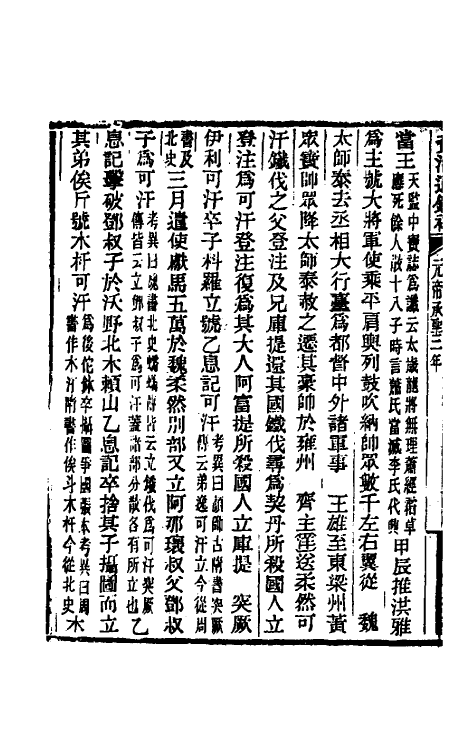 資治通鑑補　元帝承聖二年
當王天監中寶誌為讖云太歲龍將無理蕭經霜草應死餘人散十八子時言蕭氏當滅李氏代興甲辰推洪雅
為主號大將軍使乘平肩輿列鼓吹納帥眾數千左右翼從　魏
太師泰去丞相大行臺為都督中外諸軍事　王雄至東梁州黃
眾寶帥眾降太師泰赦之遷其豪帥於雍州　齊主洋送柔然可
汗鐵伐之父登注及兄庫提還其國鐵伐尋為契丹所殺國人立
登注為可汗登注復為其大人阿富提所殺國人立庫提　突厥
伊利可汗卒子科羅立號乙息記可汗考異曰顏師古隋書突厥傳云弟逸可汗立今從周
書及北史三月遣使獻馬五萬於魏柔然別部又立阿那瓌叔父鄧叔
子為可汗考異曰魏書北史蠕蠕傳皆云立鐵伐為可汗突厥傳皆云立鄧叔子為可汗蓋諸部分散各有所立也乙
息記擊破鄧叔子於沃野北木賴山乙息記卒捨其子攝圖而立
其弟俟斤號木杆可汗為後佗鉢卒攝圖爭國張本考異曰周書作木汗隋書作俟斗木杆今從北史木